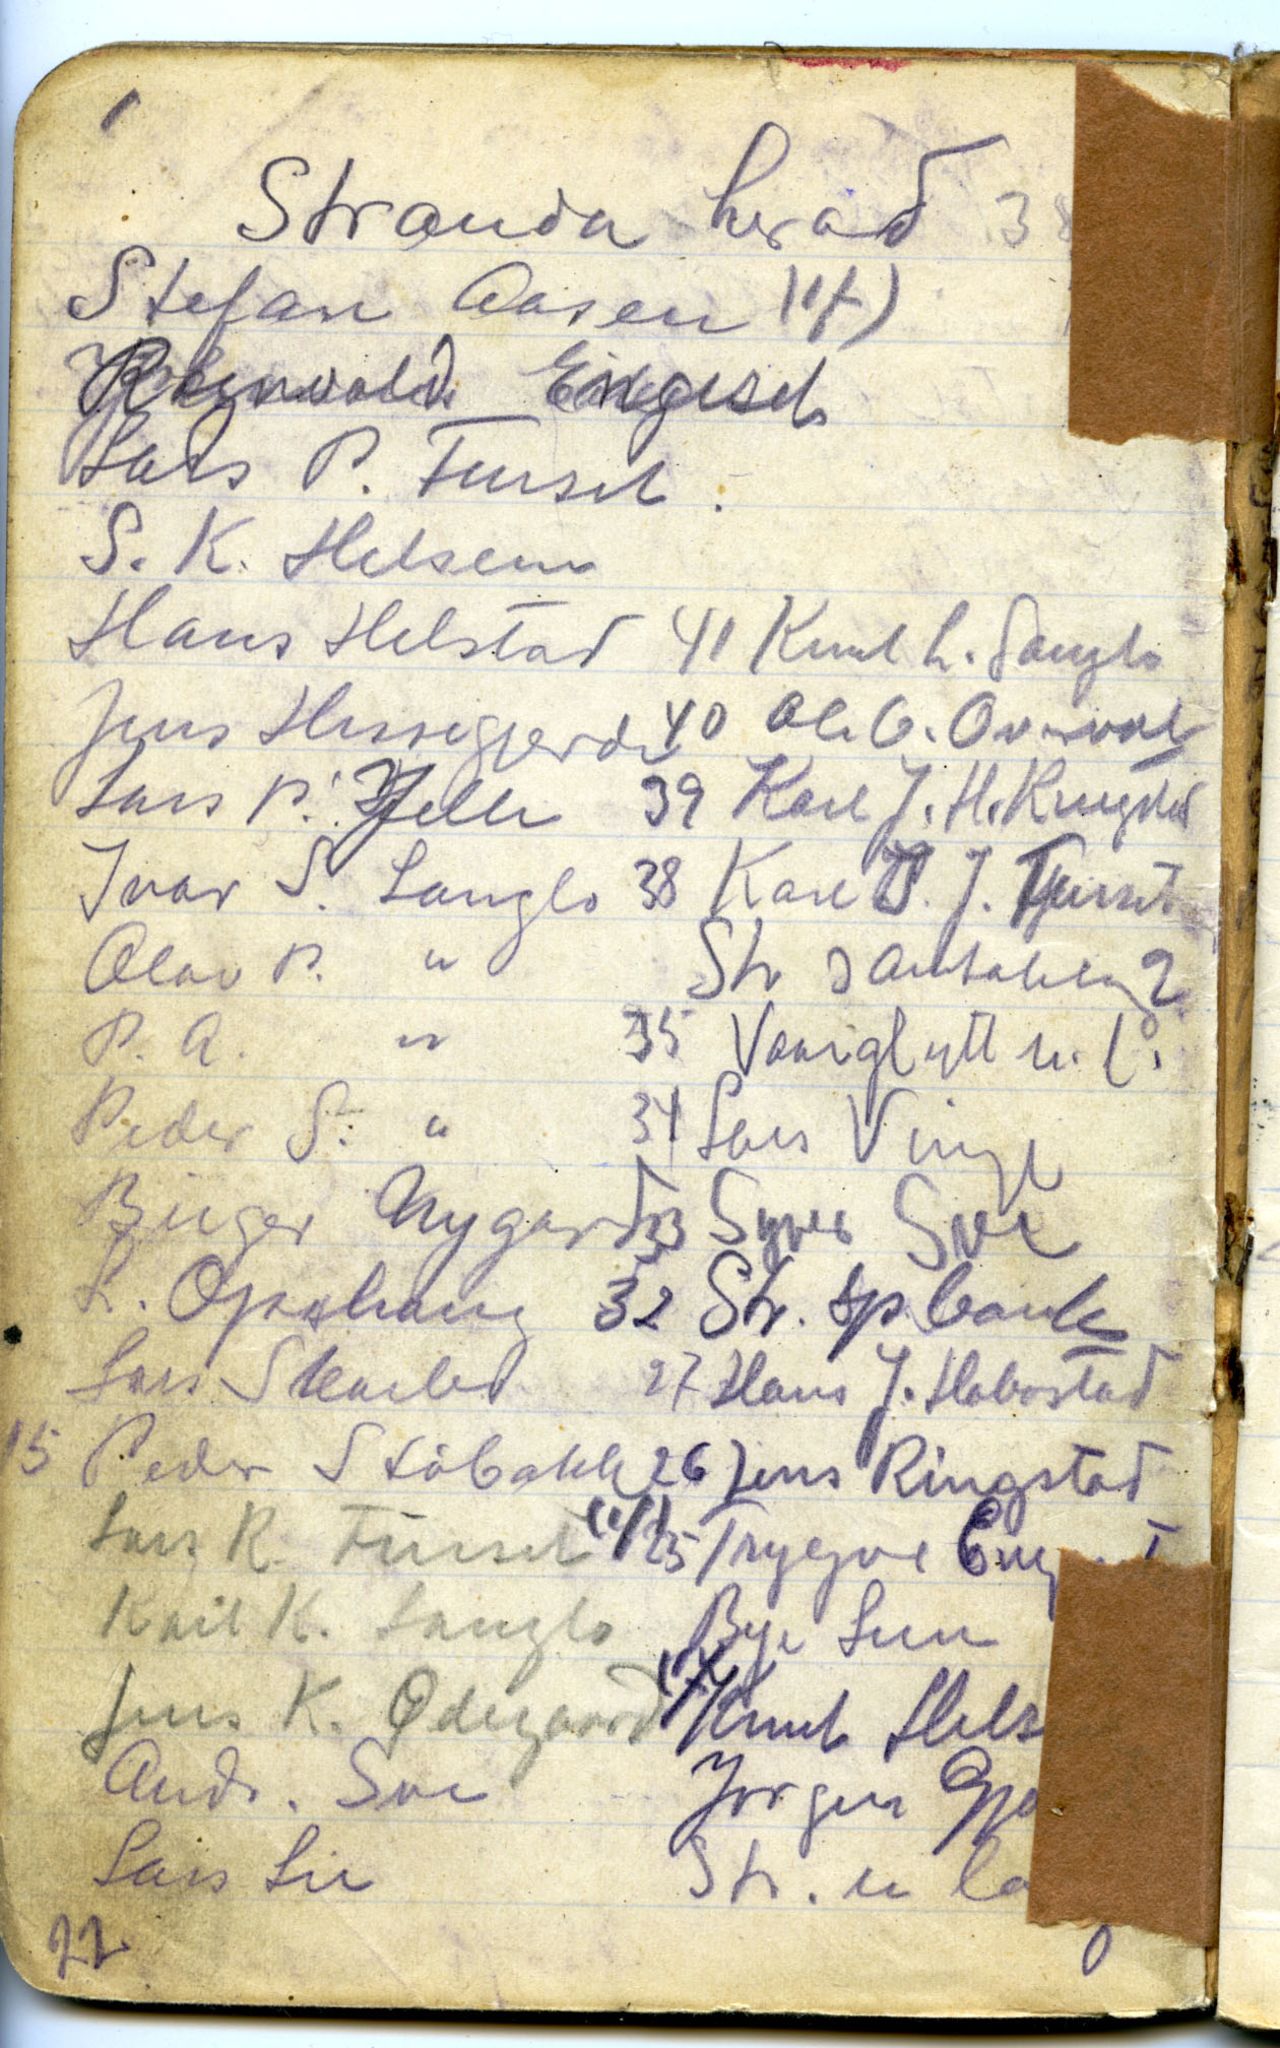 1
Stranda herad 38
Stefan Aasen (if)
Engeset
Lars P. Furset
S. K. Helsem
Hans Helstad 41 Knut L. Langlo
Jens Hessegjerde 40 Ole O. Overvoll
Lars P. Hjelle 39 Karl J. H. Ringstad
Ivar S. Langlo 38 Karl J. Furset
Olav P. " Str 2
P. A. " 35 Vaarglytt u. l.
Peder S. " 34 Lars Vinje
Birger Nygard 33 Syver Sve
L. Opshaug 32 Str. spbank
Lars Skarbø 27 Hans J. Habostad
15 Peder Støbakk 26 Jens Ringstad
Lars R. Furset 25 Trygve Eng
Karl K. Langlo Bye Lun
Jens K. Ødegaard Knut Hels
Andr. Sve Jørgen Gje
Lars Lie Str. u la
22 0